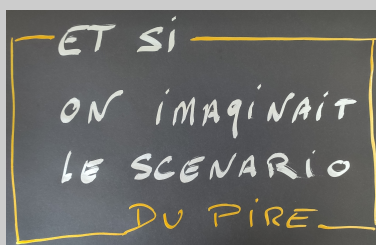 ET SI
ON IMAGINAIT
LE SCENARIO
DU PIRE